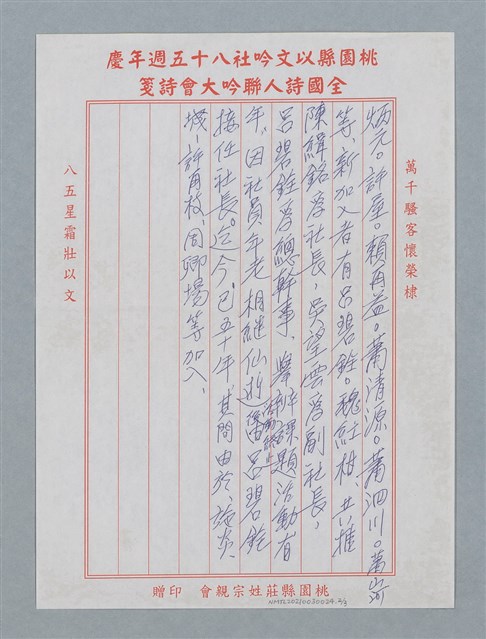 桃園縣以文吟社八十五週年慶
全國詩人聯吟大會詩箋
萬千騷客懷榮棣
炳元。許屋。賴再益。蕭清源。蕭泗川。蕭山河
等、新加入者有呂碧銓。魏紅柑、共推
陳緝銘為社長，吳望雲為副社長，
呂碧銓為總幹事、舉辦課題活動有
年，因社員年老相繼仙逝 由呂碧銓
接任社長。迄今已五十年，其間由於
許再枝、周卿場等加入、
八五星霜壯以文
桃園縣莊姓宗親會 印贈
NMTL20210030024